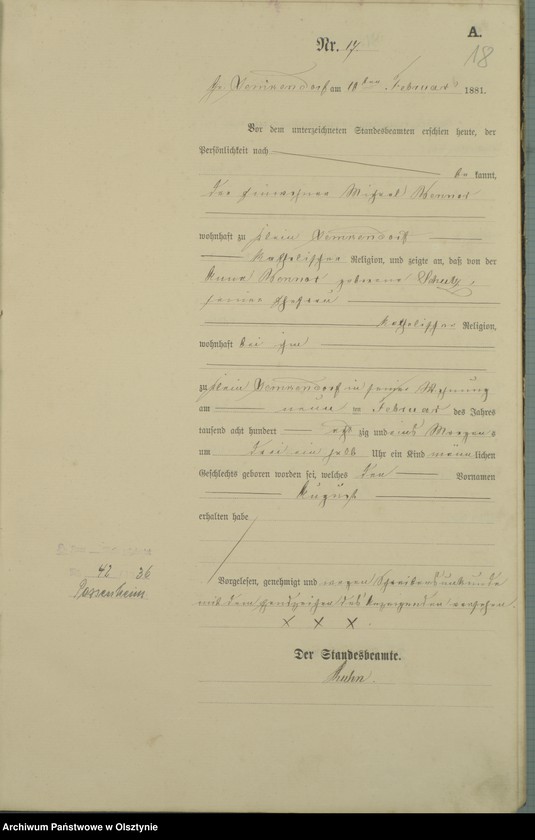 A.
18
Nr. 17.
am 10ten Februar 1881.
Vor dem unterzeichneten Standesbeamten erschien heute, der
Persönlichkeit nach
be kannt,
der Einwohner Michael
wohnhaft zu Klein
katholischer Religion, und zeigte an, daß von der
Anna geborene Schulz,
seiner Ehefrau
katholischer Religion,
wohnhaft bei ihm
zu Klein in seiner Wohnung
am neun ten Februar des Jahres
tausend acht hundert acht zig und eins Morgens
um drei ein halb Uhr ein Kind männlichen
Geschlechts geboren worden sei, welches den Vornamen
August
erhalten habe
42 36
Passenheim
Vorgelesen, genehmigt und wegen Schreibensunkunde
mit dem Handzeichen des Anzeigenden versehen.
x x x.
Der Standesbeamte.
Kuhn.
Archiwum Państwowe w Olsztynie